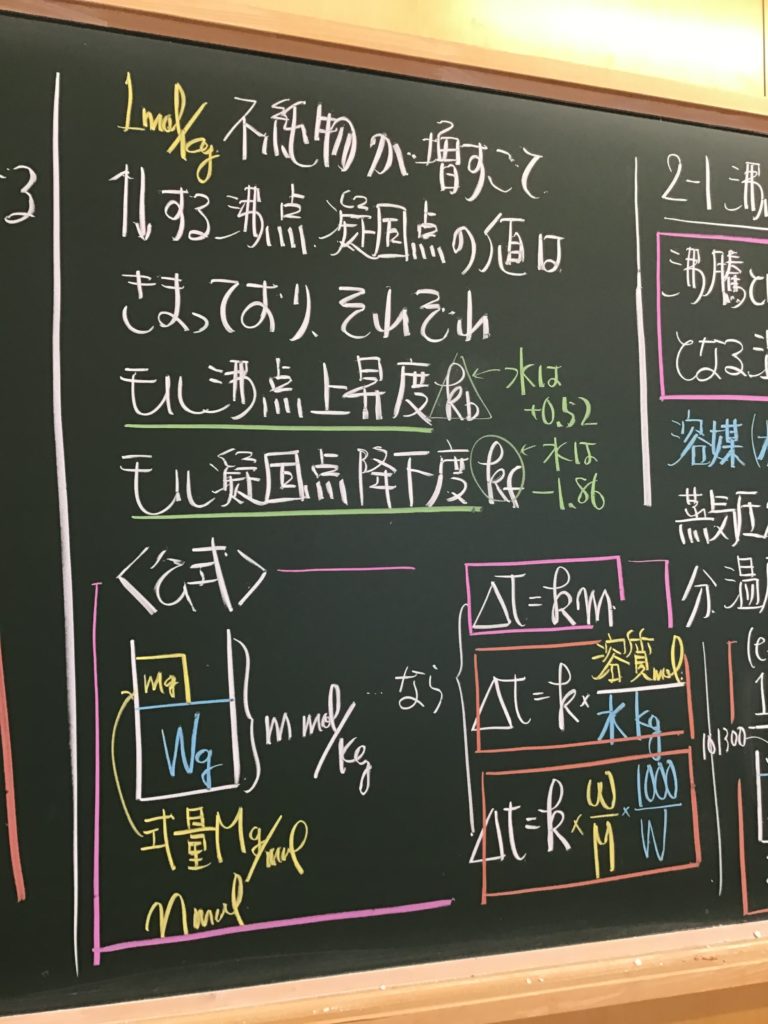 る
1mol/kg 不純物が増すごと
↑↓する沸点.凝固点の値は
きまっており、それぞれ
モル沸点上昇度 kb ←水は +0.52
モル凝固点降下度 kf ←水は -1.86
〈公式〉
mg
Wg
m mol/kg
…なら
式量Mg/mol
n mol
Δt=km
Δt=k×溶質mol/水kg
Δt=k×w/M×1000/W
2-1 沸
沸騰と
となる温
溶媒(水
蒸気圧
分.温度
(e
1
101300